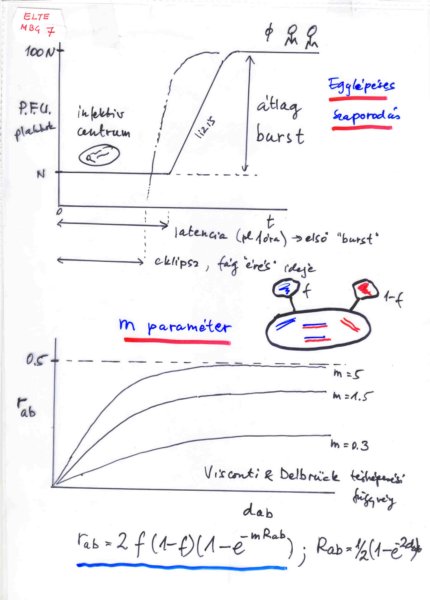 ELTE
MBG 7
100N
P.F.U.
plakkok
N
0
infektív
centrum
lizis
Φ
átlag
burst
Egylépéses
szaporodás
t
latencia (pl 1 óra) → első "burst"
eklipsz, fág "érés" ideje
f
1-f
m paraméter
0.5
r ab
m=5
m=1.5
m=0.3
Visconti & Delbrück térképezési
függvény
dab
rab = 2 f (1-f)(1-e^-mRab) ; Rab = 1/2(1-e^-2dab)